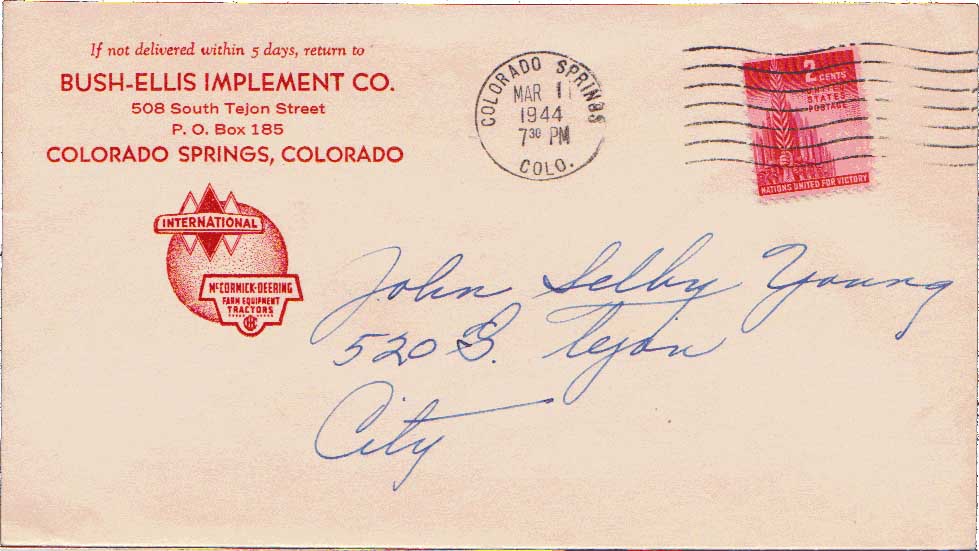 If not delivered within 5 days, return to
BUSH-ELLIS IMPLEMENT CO.
508 South Tejon Street
P. O. Box 185
COLORADO SPRINGS, COLORADO
INTERNATIONAL
McCORMICK-DEERING
FARM EQUIPMENT
TRACTORS
IHC
COLORADO SPRINGS
MAR 11
1944
7 30 PM
COLO.
2 CENTS
UNITED
STATES
POSTAGE
NATIONS UNITED FOR VICTORY
John Selby Young
520 S. Tejon
City